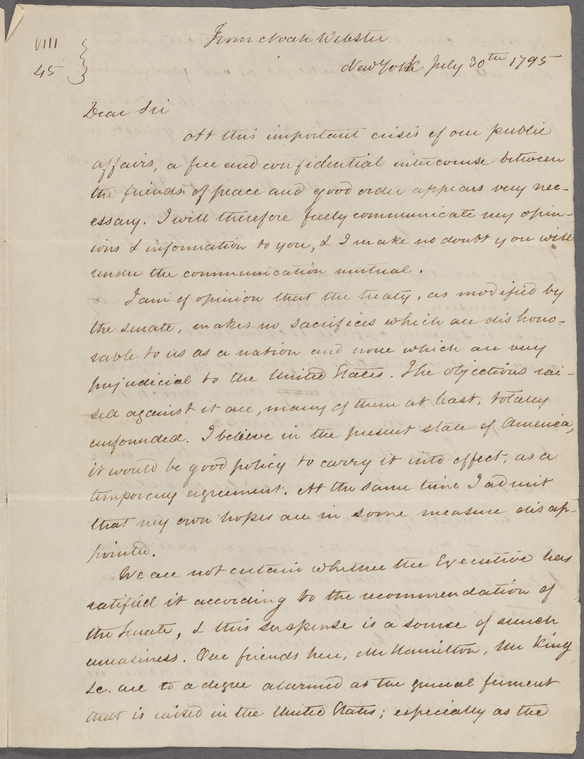 From Noah Webster
VIII
45
New York July 30th 1795
Dear Sir
At this important crisis of our public
affairs, a free and confidential intercourse between
the friends of peace and good order appears very nec-
essary. I will therefore freely communicate my opin-
ions & information to you, & I make no doubt you will
render the communication mutual.
I am of opinion that the treaty, as modified by
the senate, makes no sacrifices which are dishono-
rable to us as a nation and none which are very
prejudicial to the United States. The objections rai-
sed against it are, many of them at least, totally
unfounded. I believe in the present state of America,
it would be good policy to carry it into effect, as a
temporary agreement. At the same time I admit
that my own hopes are in some measure disap-
pointed.
We are not certain whether the Executive has
ratified it according to the recommendation of
the Senate, & this suspense is a source of much
uneasiness. Our friends here, Mr Hamilton, Mr King
&c. are to a degree alarmed at the general ferment
that is raised in the United States; especially as the